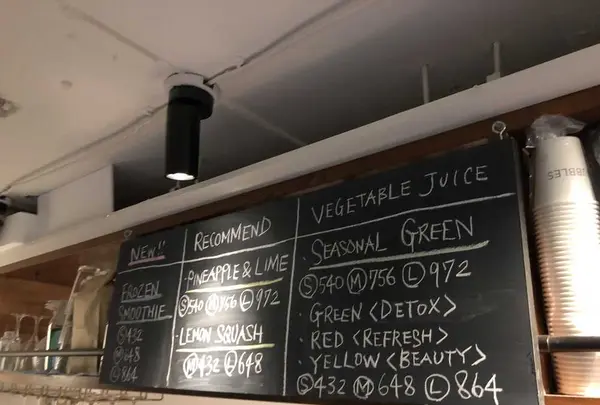 NEW!!
FROZEN
SMOOTHIE
Ⓢ432
Ⓜ648
Ⓛ864
RECOMMEND
・PINEAPPLE & LIME
Ⓢ540 Ⓜ756 Ⓛ972
・LEMON SQUASH
Ⓜ432 Ⓛ648
VEGETABLE JUICE
・SEASONAL GREEN
Ⓢ540 Ⓜ756 Ⓛ972
・GREEN <DETOX>
・RED <REFRESH>
・YELLOW <BEAUTY>
Ⓢ432 Ⓜ648 Ⓛ864